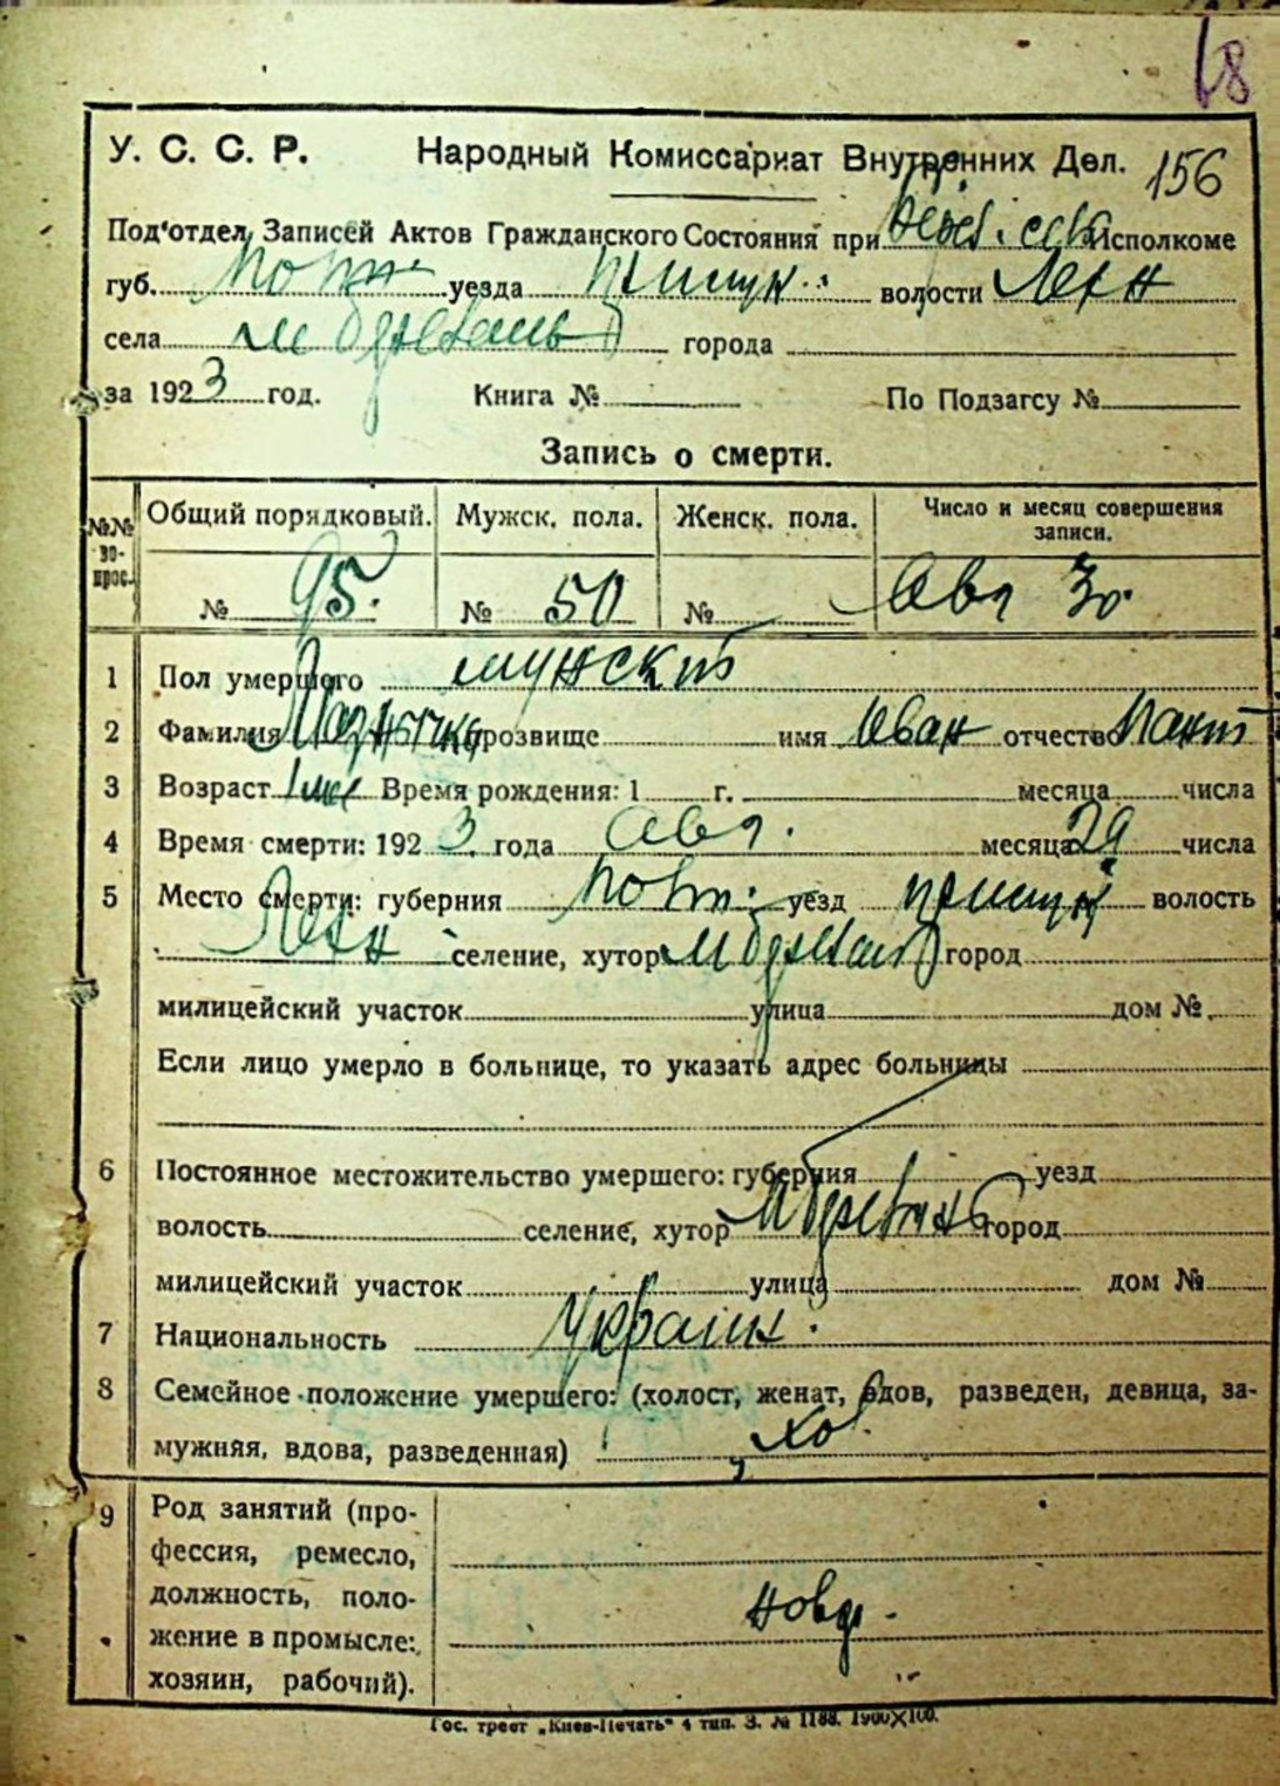 68
У. С. С. Р. Народный Комиссариат Внутренних Дел. 156
Под'отдел Записей Актов Гражданского Состояния при Исполкоме
губ. Полт уезда волости
села города
за 1923 год. Книга № По Подзагсу №
Запись о смерти.
№№ во- прос. Общий порядковый. Мужск. пола. Женск. пола. Число и месяц совершения записи.
№ 95. № 50 № Авг 30.
1 Пол умершего мужской
2 Фамилия прозвище имя Иван отчество
3 Возраст Время рождения: 1 г. месяца числа
4 Время смерти: 1923 года Авг. месяца 29 числа
5 Место смерти: губерния Полт. уезд волость
селение, хутор город
милицейский участок улица дом №
Если лицо умерло в больнице, то указать адрес больницы
6 Постоянное местожительство умершего: губерния уезд
волость селение, хутор город
милицейский участок улица дом №
7 Национальность Украин.
8 Семейное положение умершего: (холост, женат, вдов, разведен, девица, за-
мужняя, вдова, разведенная) Хол
9 Род занятий (про-
фессия, ремесло,
должность, поло-
жение в промысле:
хозяин, рабочий).
Гос. трест „Киев-Печать“ 4 тип. З. № 1188. 1900×100.